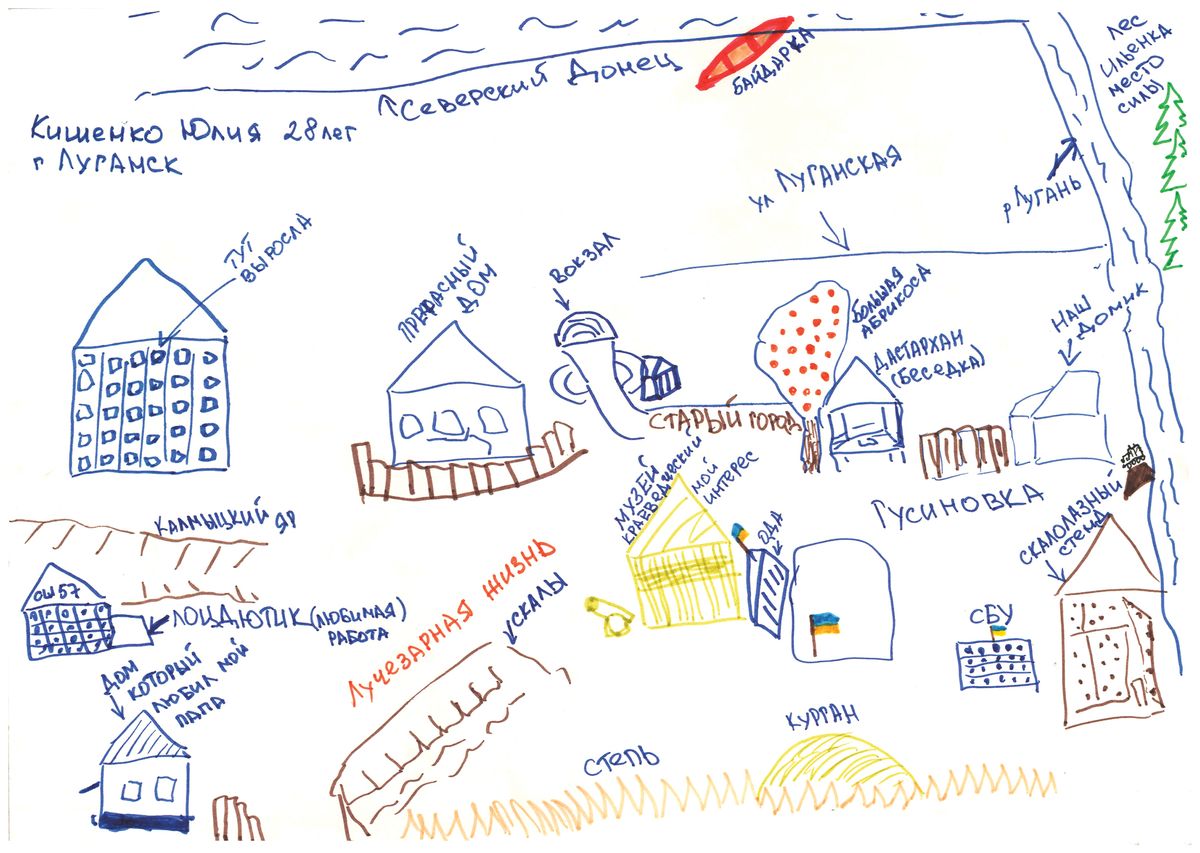 ↑Северский Донец
БАЙДАРКА
ЛЕС
ИЛЬЕНКА
МЕСТО
СИЛЫ
Кишенко Юлия 28лет
г Луганск
ул Луганская
р Лугань
ТУТ
ВЫРОСЛА
ПРЕКРАСНЫЙ
ДОМ
ВОКЗАЛ
БОЛЬШАЯ
АБРИКОСА
ДАСТАРХАН
(БЕСЕДКА)
НАШ
ДОМИК
СТАРЫЙ ГОРОД
МУЗЕЙ
КРАЕВЕДЧЕСКИЙ
МОЙ
ИНТЕРЕС
ОДА
ГУСИНОВКА
СКАЛОЛАЗНЫЙ
СТЕНД
КАЛМЫЦКИЙ ЯР
ОШ 57
ЛОЦДЮТИК (ЛЮБИМАЯ)
РАБОТА
ЛУЧЕЗАРНАЯ ЖИЗНЬ
СКАЛЫ
СБУ
ДОМ
КОТОРЫЙ
ЛЮБИЛ МОЙ
ПАПА
СТЕПЬ
КУРГАН